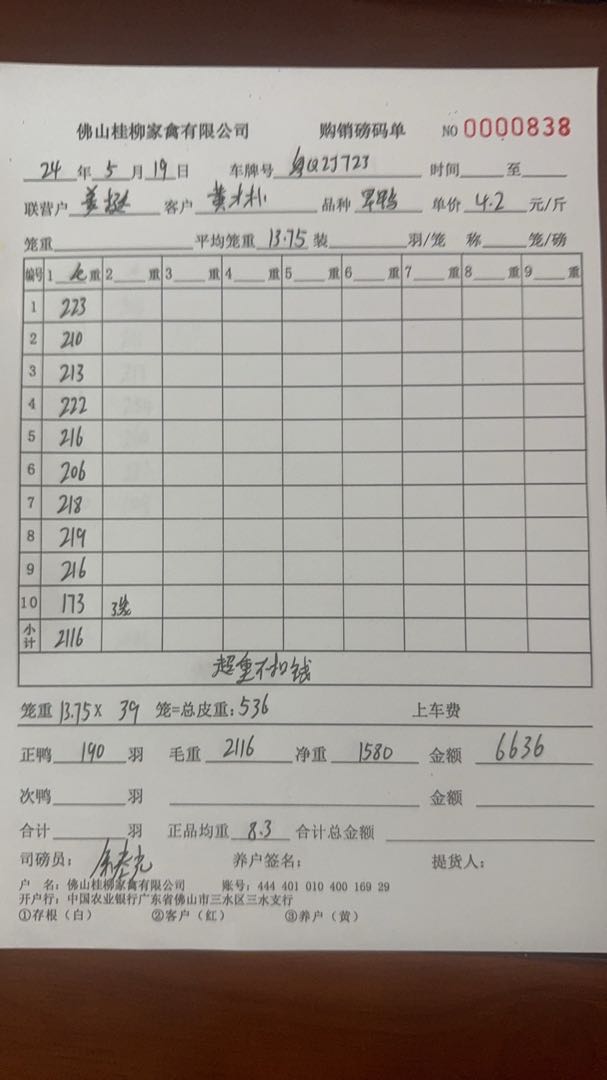 佛山桂柳家禽有限公司 购销磅码单 NO 0000838
24 年 5 月 19 日 车牌号 粤Q2J723 时间 至
联营户 客户 黄才朴 品种 单价 4.2 元/斤
笼重 平均笼重 13.75 装 羽/笼 称 笼/磅
编号 1 重 2 重 3 重 4 重 5 重 6 重 7 重 8 重 9 重
1 223
2 210
3 213
4 222
5 216
6 206
7 218
8 219
9 216
10 173 3笼
小计 2116
超重不扣钱
笼重 13.75 X 39 笼=总皮重: 536 上车费
正鸭 190 羽 毛重 2116 净重 1580 金额 6636
次鸭 羽 金额
合计 羽 正品均重 8.3 合计总金额
司磅员: 养户签名: 提货人:
户 名: 佛山桂柳家禽有限公司 账号: 444 401 010 400 169 29
开户行: 中国农业银行广东省佛山市三水区三水支行
①存根（白） ②客户（红） ③养户（黄）